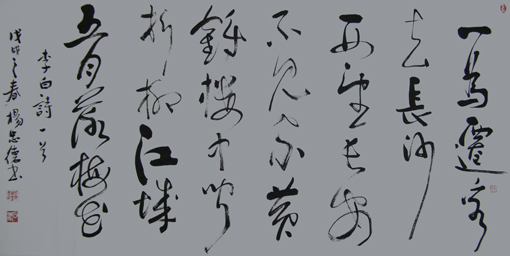 一為遷客
去長沙
西望長安
不見家黃
鶴樓中聞
折柳江城
五月落梅花
李白詩一首
之春楊忠書